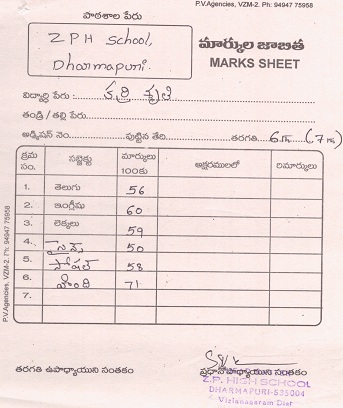 P.V.Agencies, VZM-2. Ph: 94947 75958
పాఠశాల పేరు
Z PH School,
Dharmapuri.
మార్కుల జాబిత
MARKS SHEET
విద్యార్థి పేరు :
తండ్రి / తల్లి పేరు
అడ్మిషన్ నెం. పుట్టిన తేది తరగతి 6
క్రమ సం. సబ్జెక్టు మార్కులు 100కు అక్షరములలో రిమార్కులు
1. తెలుగు 56
2. ఇంగ్లీషు 60
3. లెక్కలు 59
4. సైన్స్ 50
5. సోషల్ 58
6. హింది 71
7.
తరగతి ఉపాధ్యాయుని సంతకం ప్రధానోపాధ్యాయుని సంతకం
Z.P. HIGH SCHOOL
DHARMAPURI-535004
Vizianagram Dist
P.V.Agencies, VZM-2. Ph: 94947 75958